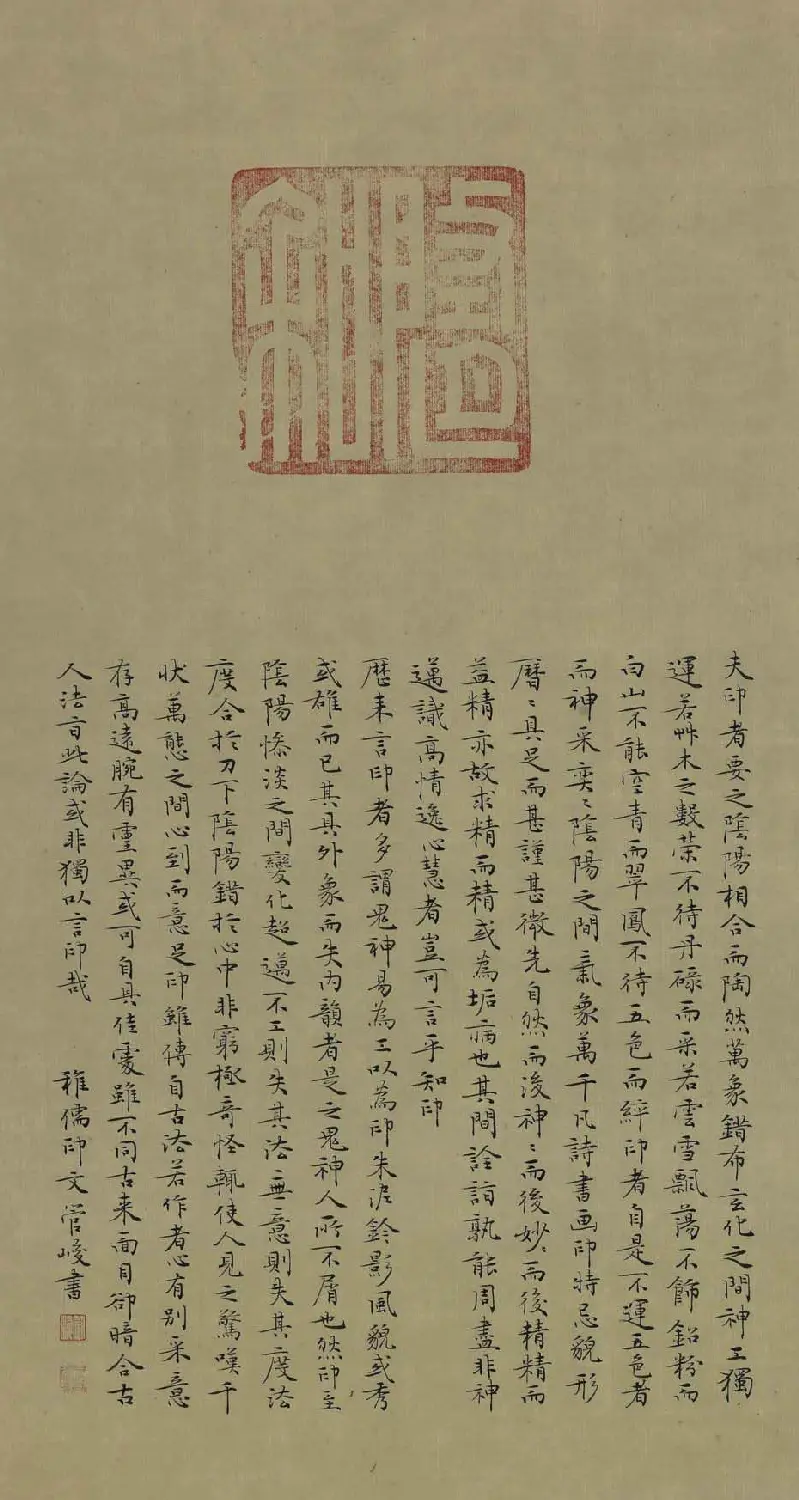 夫印者要之陰陽相合而陶然萬象錯布玄化之間神工獨
運若艸木之敷榮不待丹碌而采若雲雪飄蕩不飾鉛粉而
白山不能空青而翠鳳不待五色而綷印者自是不運五色者
而神采奕〻陰陽之間氣象萬千凡詩書画印特忌貌形
曆〻具足而甚謹甚微先自然而後神〻而後妙〻而後精精而
益精亦故求精而精或為垢病也其間詮詣孰能周盡非神
邁識高情逸心慧者豈可言乎知印
歷来言印者多謂鬼神易為工以為印朱泥鈐影風貌或秀
或雄而已其具外象而失內韻者是之鬼神人所不屑也然印至
陰陽慘淡之間變化超邁不工則失其法無意則失其度法
度合於刀下陰陽錯於心中非窮極奇怪輒使人見之驚嘆千
狀萬態之間心到而意足印雖傳自古法若作者心有別采意
存高遠腕有靈異或可自具佳處雖不同古来面目卻暗合古
人法言此論或非獨以言印哉
稚儒印文管峻書